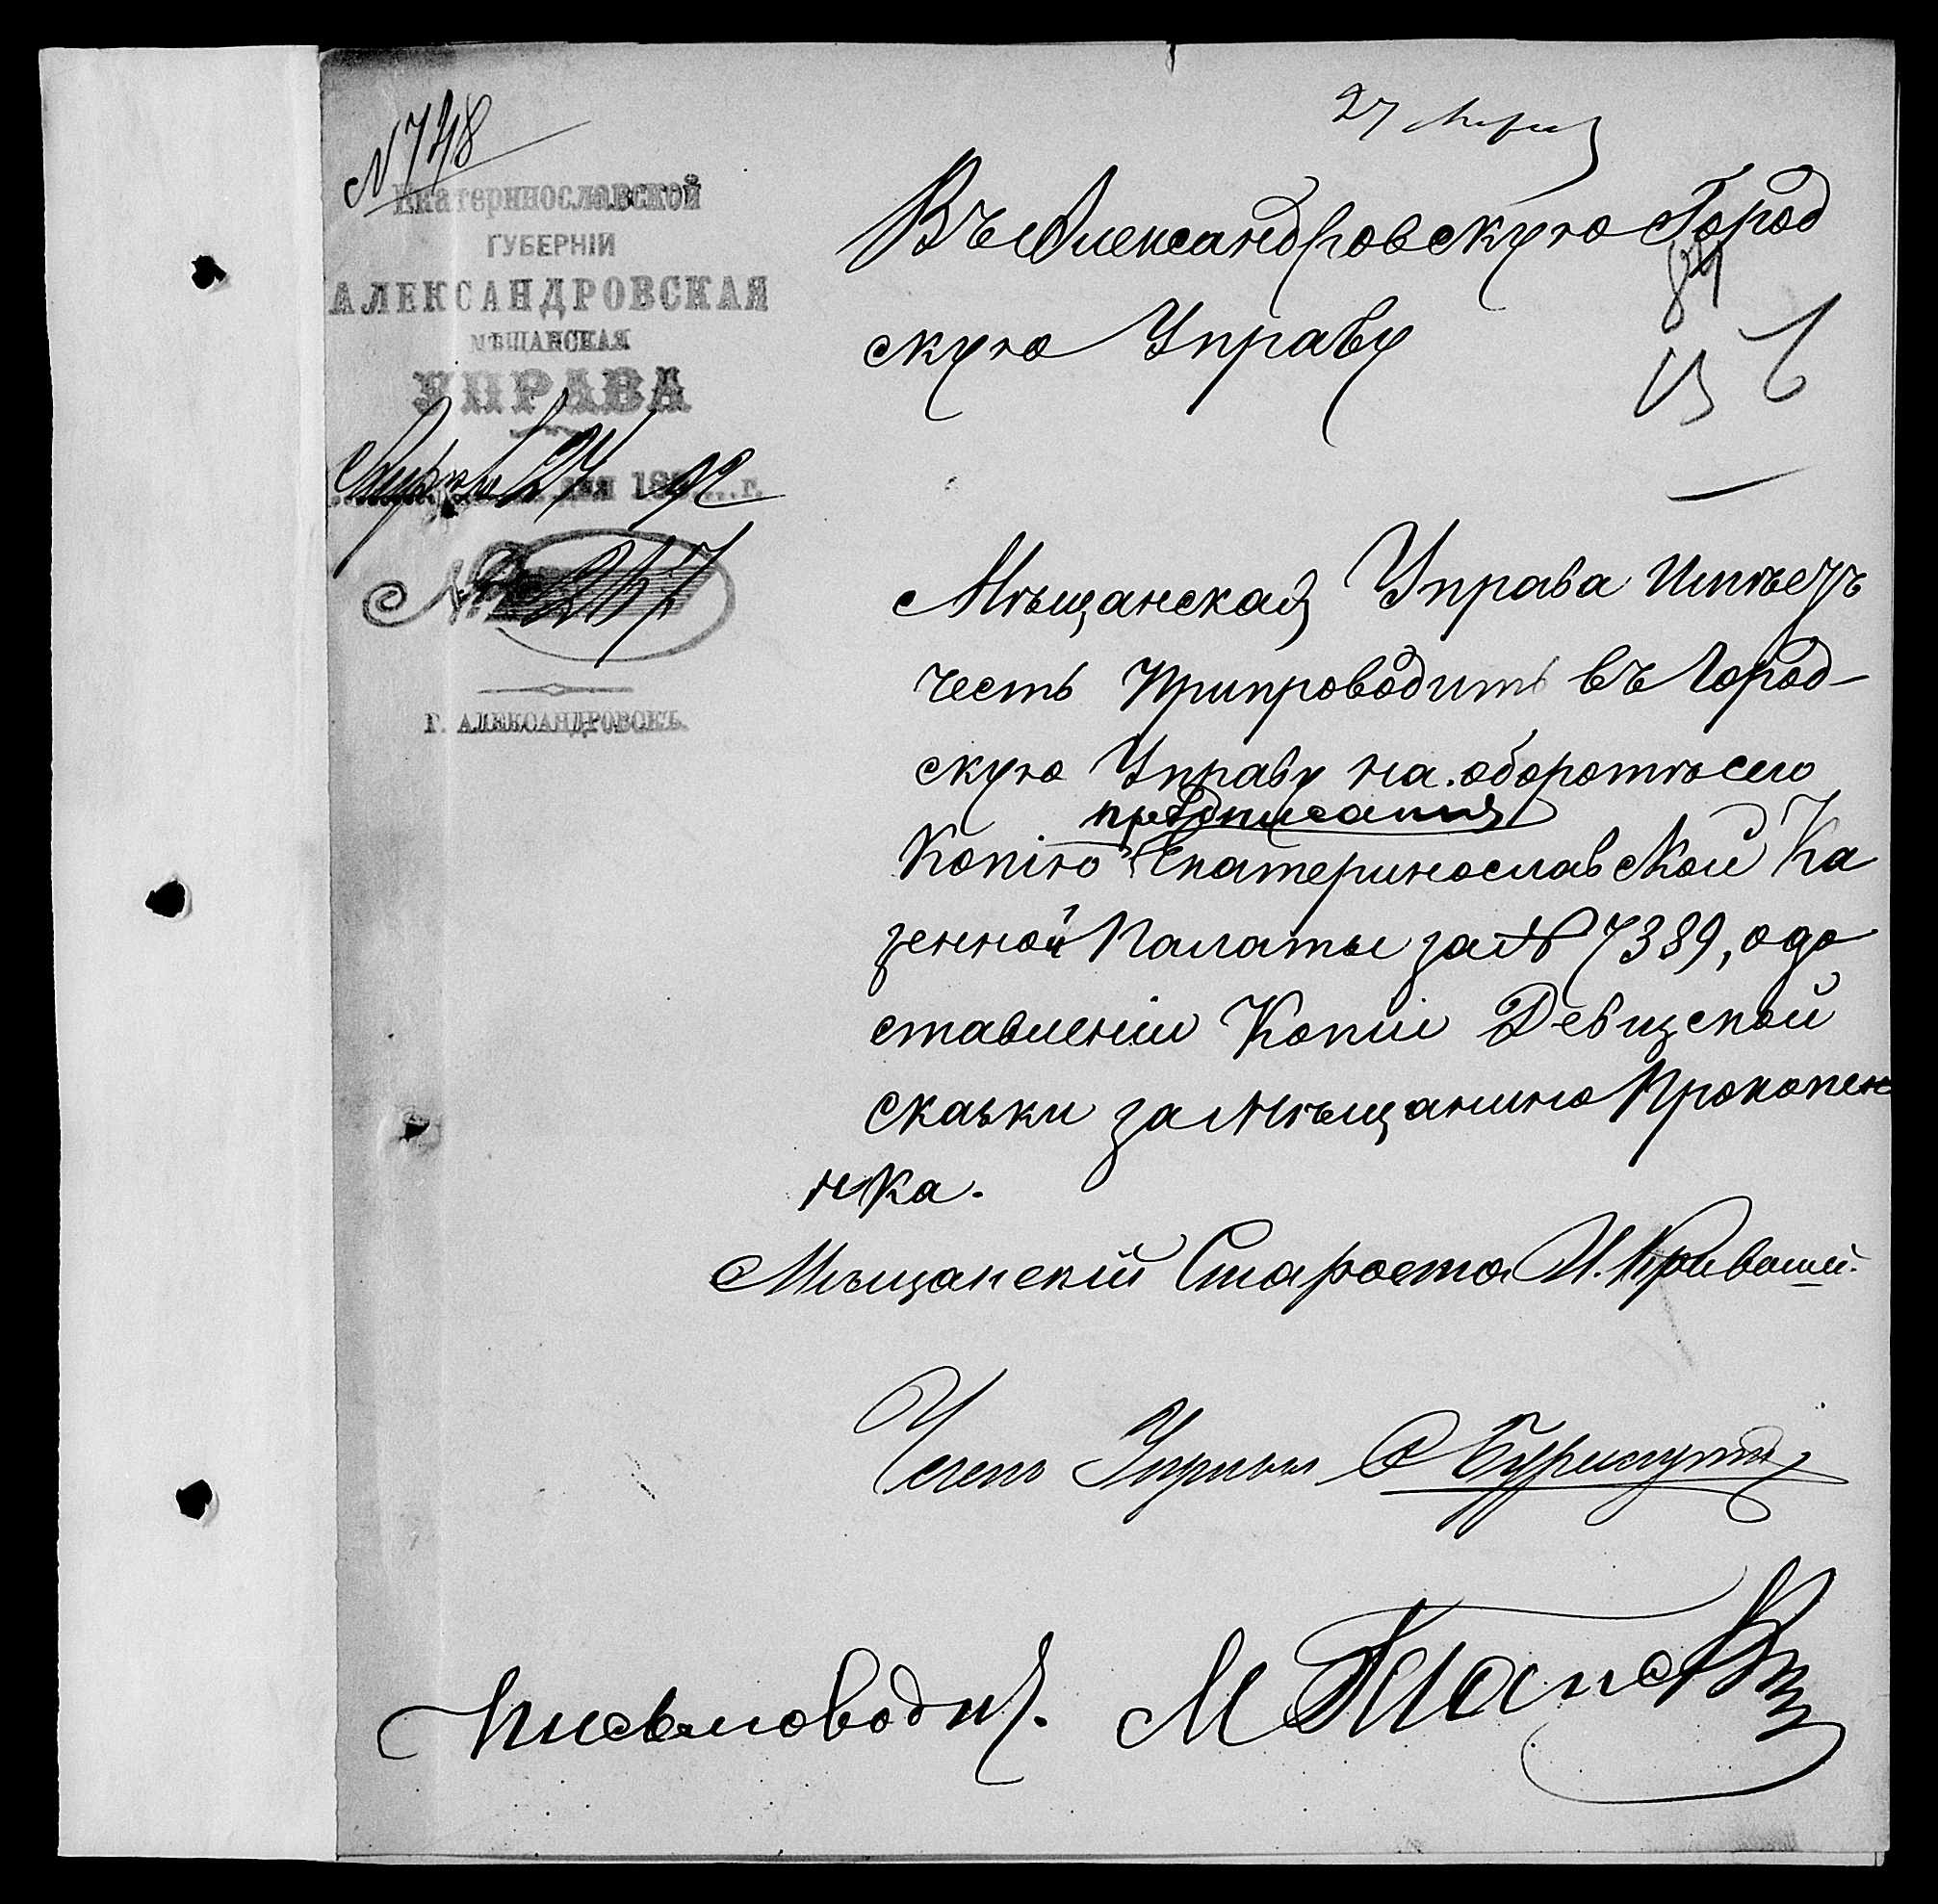 N 748
27 Апрел
Екатеринославской
ГУБЕРНІЙ
АЛЕКСАНДРОВСКАЯ
МѢЩАНСКАЯ
УПРАВА
Апрѣля 27 дня 1892 г.
№ 267
Г. АЛЕКСАНДРОВСКЪ.
Въ Александровскую Город
скую Управу
Мѣщанская Управа имѣетъ
честь припроводить въ Город-
скую Управу на оборотѣ сего
предписания
Копію Екатеринославской Ка
зенной Палаты за № 7389, о до
ставленіи Копіи Девизской
сказки за Мѣщанино Прокопен
нка.
Мѣщанскій Староста И.
Членъ Управы С
Письмоводит. М